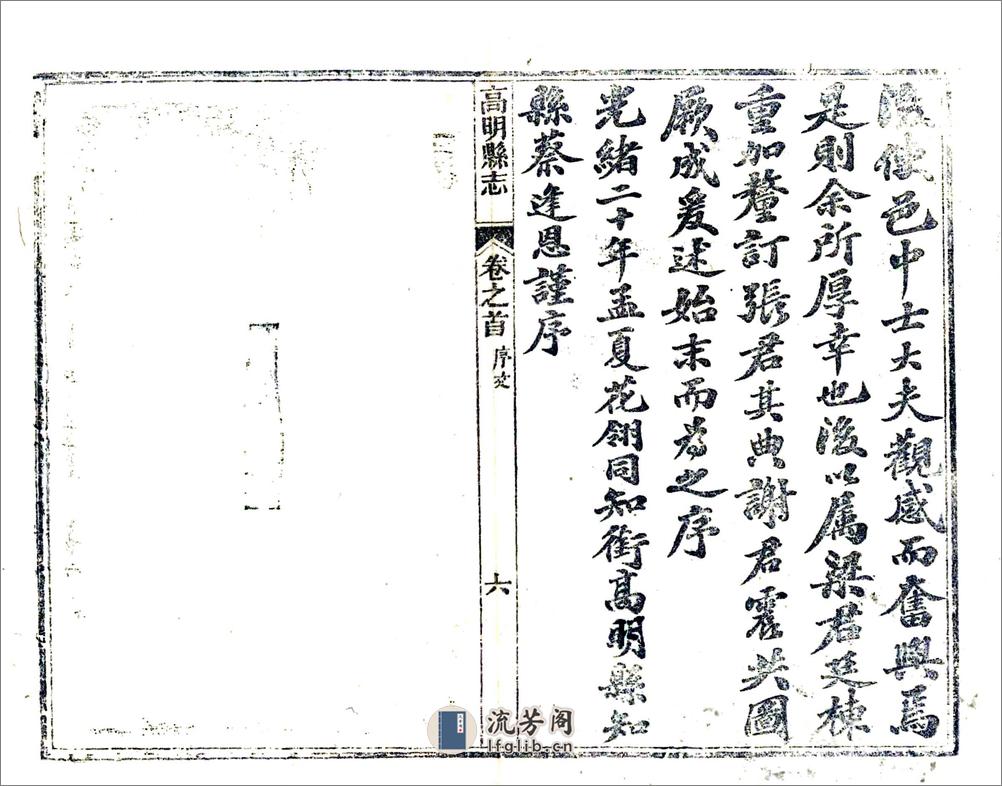 使邑中士大夫觀感而奮興焉
是則余所厚幸也後以屬梁君廷棟
重加釐訂張君其典謝君霑共圖
厥成爰述始末而為之序
光緒二十年孟夏花翎同知銜高明縣知
縣蔡逢恩謹序
高明縣志
卷之首
序文
六
流芳阁
lfglib.cn